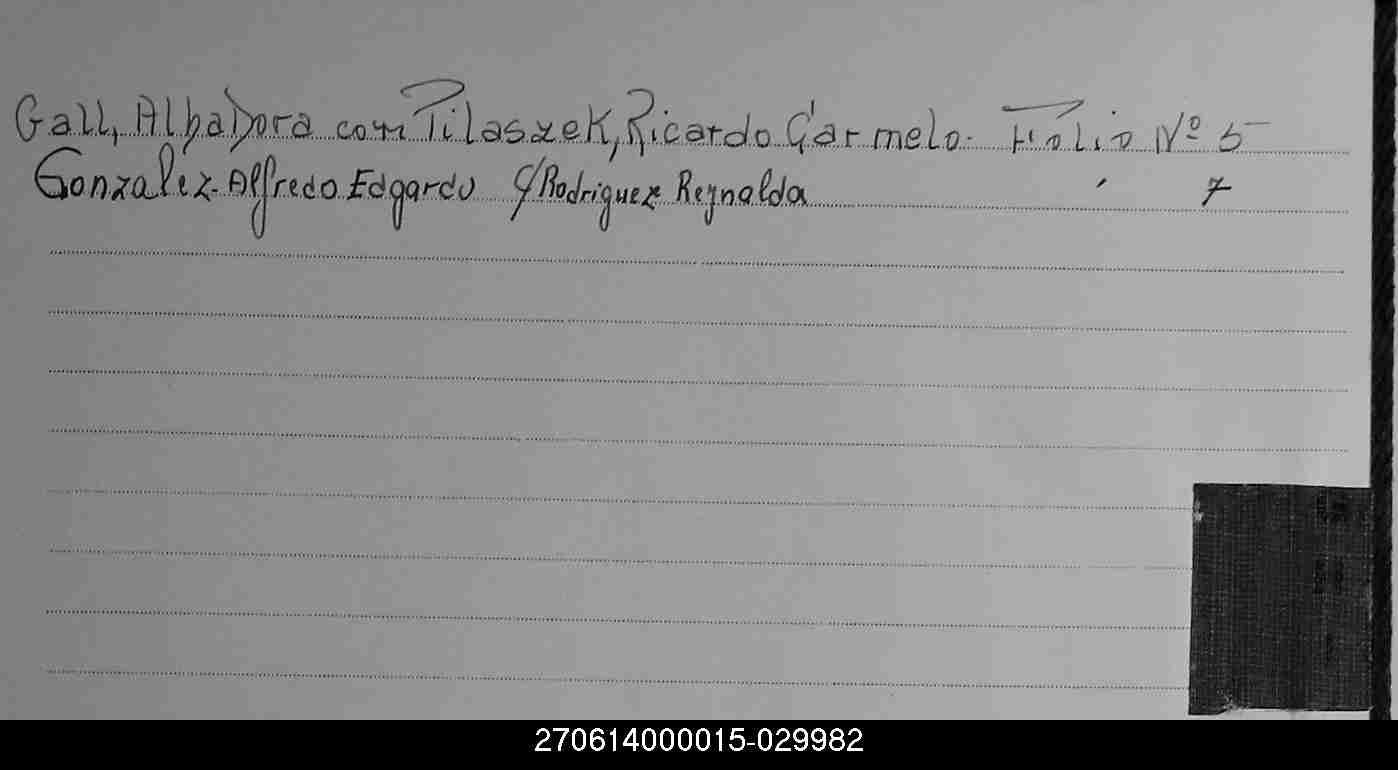 Gall, Alba Dora con Pilaszek, Ricardo Carmelo. Folio Nº 5
Gonzalez. Alfredo Edgardo c/Rodriguez Reynalda ' 7
270614000015-029982